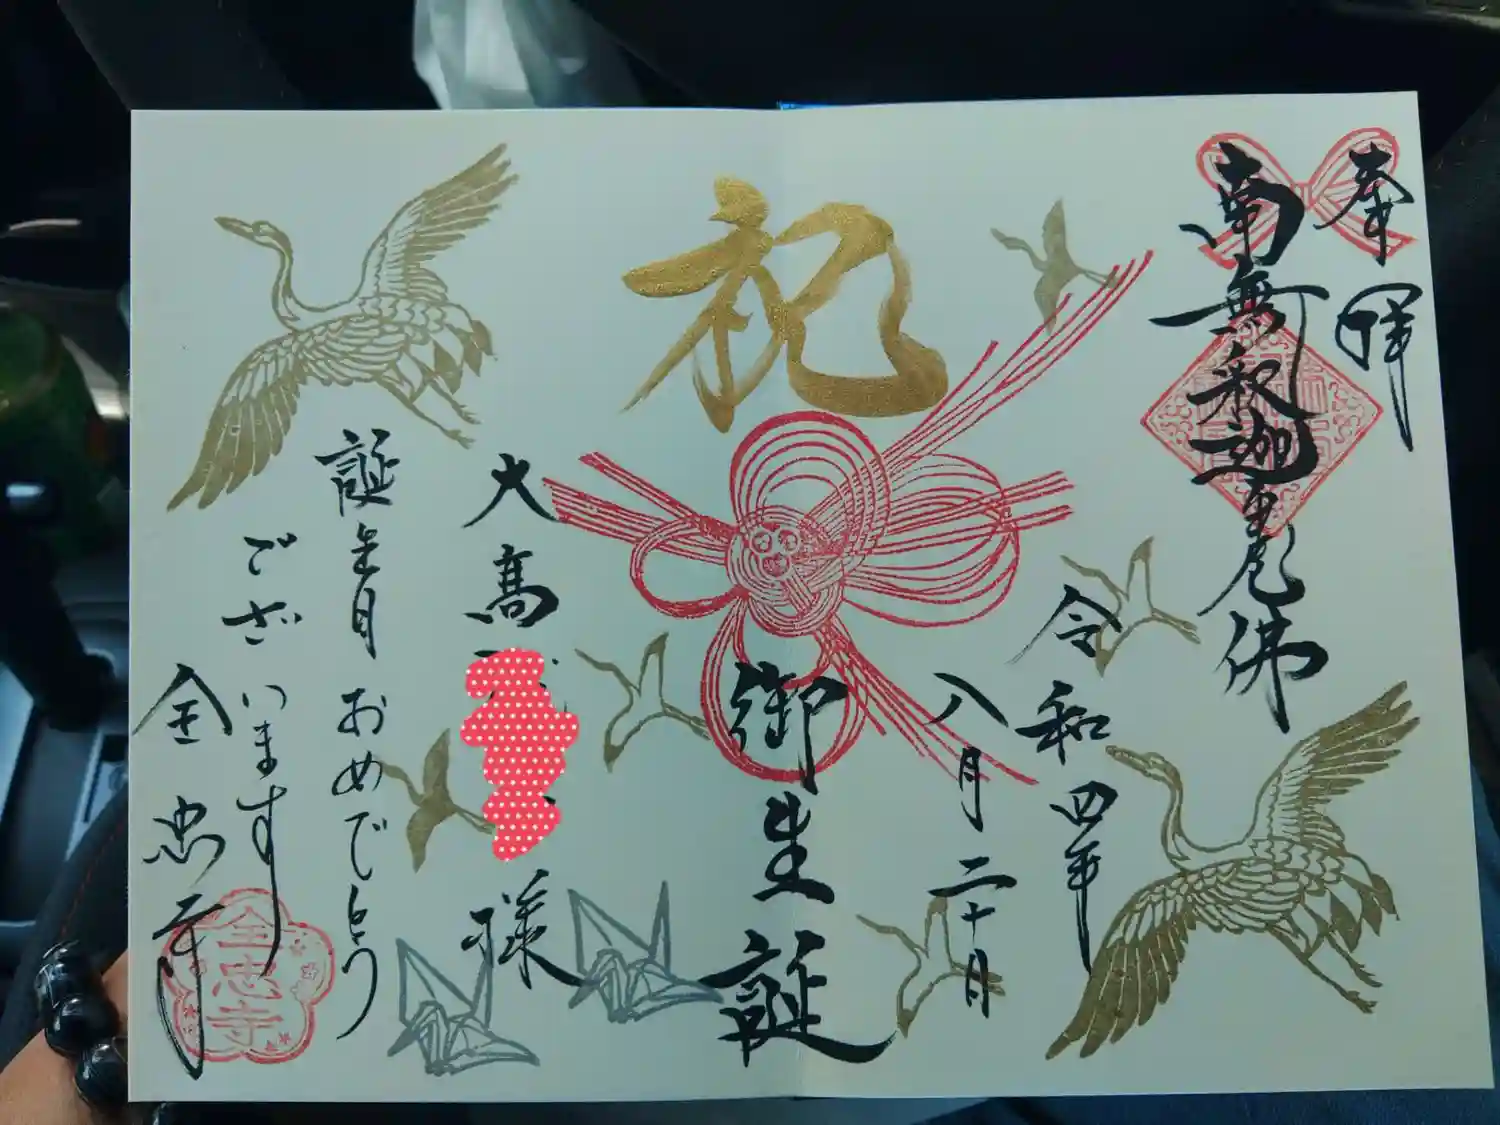 奉拝
南無釈迦牟尼佛
令和四年
八月二十日
祝
御生誕
大髙
様
誕生日おめでとう
ございます
全忠寺
全忠寺